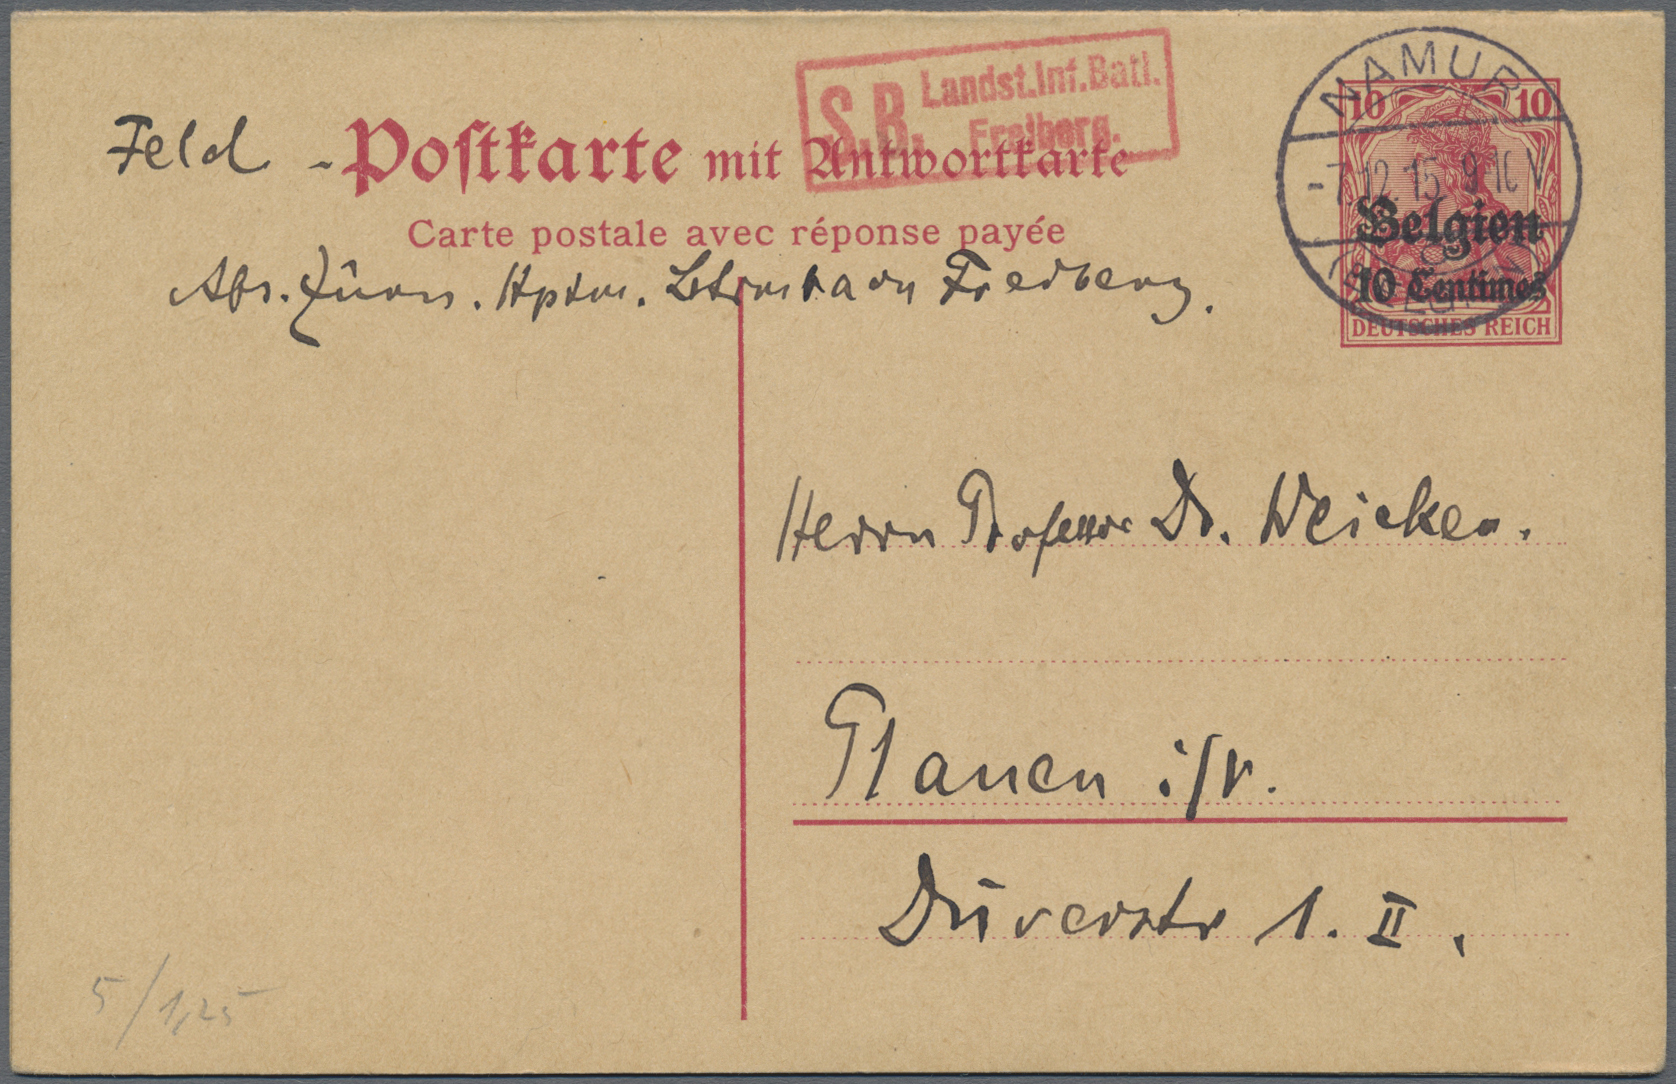 S.B. Landst.Inf.Batl.
Freiberg.
NAMUR
-7.12.15 9-10V
10 10
Belgien
10 Centimes
DEUTSCHES REICH
Feld - Postkarte mit Antwortkarte
Carte postale avec réponse payée
Abs. Hptm.
Herrn Professor Dr. Weicker.
Plauen i/V.
Dürerstr 1. II.
5/1,25